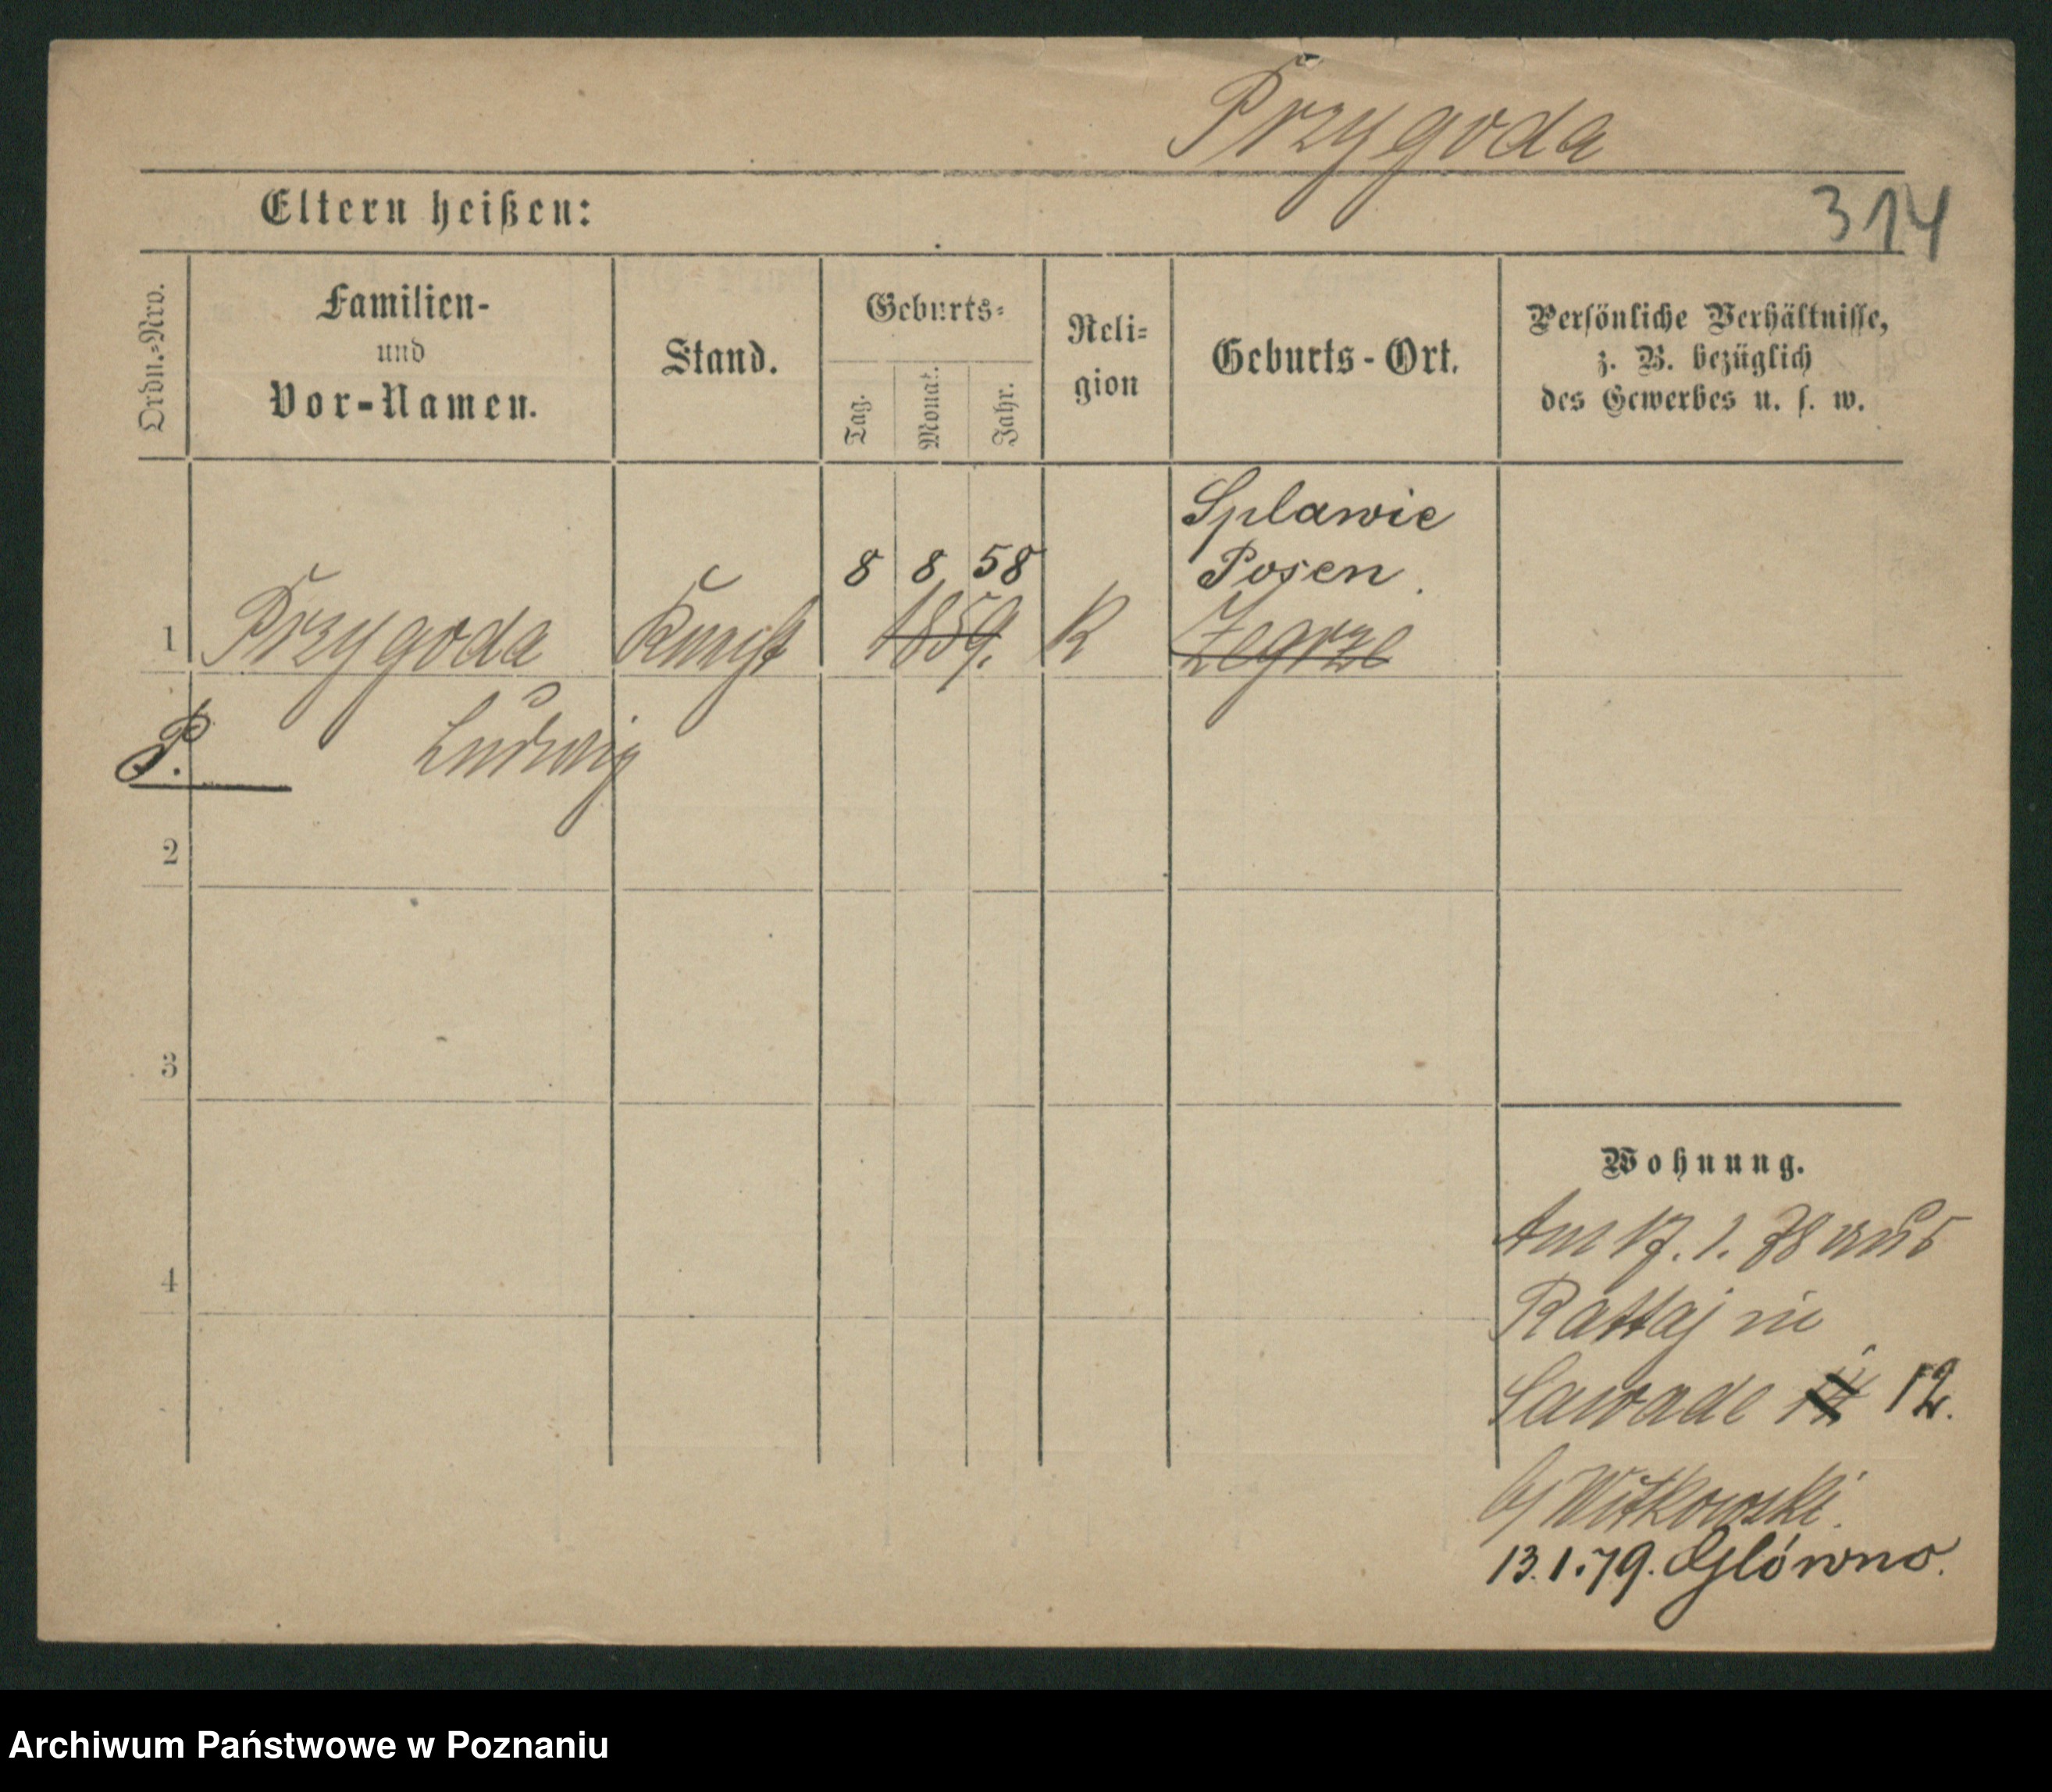 Przygoda
Eltern heißen:
314
Ordn.-Nro.
Familien-
und
Vor-Namen.
Stand.
Geburts-
Tag.
Monat.
Jahr.
Reli-
gion
Geburts-Ort.
Persönliche Verhältnisse,
z. B. bezüglich
des Gewerbes u. s. w.
Splawie
8 8 58 Posen.
1 Przygoda Knecht 1859. K Zegrze
P. Ludwig
2
3
4
Wohnung.
Am 17. 1. 78 aus
Rattaj in
Sawade 12.
b/ Witkowski.
13.1.79. Główno.
Archiwum Państwowe w Poznaniu